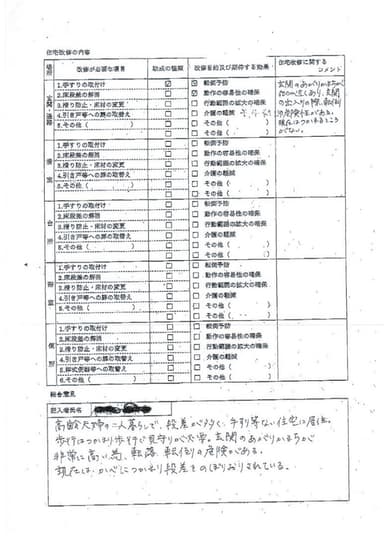 住宅改修の内容
場所 改修が必要な項目 助成の種類 改修目的及び期待する効果 住宅改修に関するコメント
玄関・通路
1.手すりの取付け ☑ ☑ 転倒予防
2.床段差の解消 □ ☑ 動作の容易性の確保
3.滑り防止・床材の変更 □ □ 行動範囲の拡大の確保
4.引き戸等への扉の取替え □ □ 介護の軽減
5.その他( ) □ □ その他(
□ その他( )
玄関のあがりかまちが
あり、玄関
の出入りの際、転倒
の危険性がある。
現在はつかまるところ
がない。
室
1.手すりの取付け □ □ 転倒予防
2.床段差の解消 □ □ 動作の容易性の確保
3.滑り防止・床材の変更 □ □ 行動範囲の拡大の確保
4.引き戸等への扉の取替え □ □ 介護の軽減
5.その他( ) □ □ その他( )
□ その他( )
台所
1.手すりの取付け □ □ 転倒予防
2.床段差の解消 □ □ 動作の容易性の確保
3.滑り防止・床材の変更 □ □ 行動範囲の拡大の確保
4.引き戸等への扉の取替え □ □ 介護の軽減
5.その他( ) □ □ その他( )
□ その他( )
室
1.手すりの取付け □ □ 転倒予防
2.床段差の解消 □ □ 動作の容易性の確保
3.滑り防止・床材の変更 □ □ 行動範囲の拡大の確保
4.引き戸等への扉の取替え □ □ 介護の軽減
5.その他( ) □ □ その他( )
□ その他( )
便所
1.手すりの取付け □ □ 転倒予防
2.床段差の解消 □ □ 動作の容易性の確保
3.滑り防止・床材の変更 □ □ 行動範囲の拡大の確保
4.引き戸等への扉の取替え □ □ 介護の軽減
5.様式便器等への取替え □ □ その他( )
6.その他( ) □ □ その他( )
総合意見
記入者氏名
高齢夫婦の二人暮らしで、段差が多く、手すり等ない住宅に居住。
歩行はつかまり歩行で見守りが必要。玄関のあがりかまちが
非常に高い為、転落、転倒の危険がある。
現在は、かべにつかまり段差をのぼりおりされている。